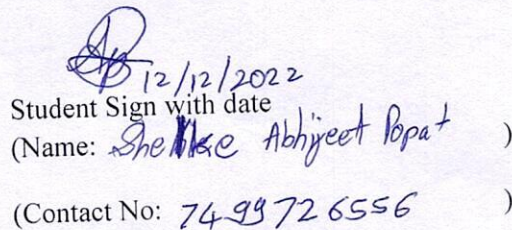 12/12/2022
Student Sign with date
(Name: Shelke Abhijeet Popat )
(Contact No: 7499726556 )